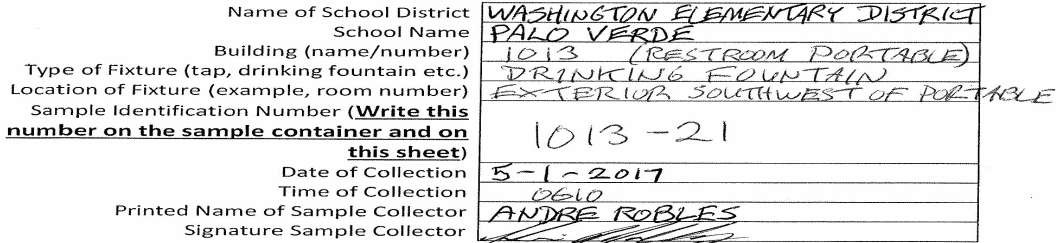 Name of School District WASHINGTON ELEMENTARY DISTRICT
School Name PALO VERDE
Building (name/number) 1013 (RESTROOM PORTABLE)
Type of Fixture (tap, drinking fountain etc.) DRINKING FOUNTAIN
Location of Fixture (example, room number) EXTERIOR SOUTHWEST OF PORTABLE
Sample Identification Number (Write this
number on the sample container and on
this sheet) 1013-21
Date of Collection 5-1-2017
Time of Collection 0610
Printed Name of Sample Collector ANDRE ROBLES
Signature Sample Collector